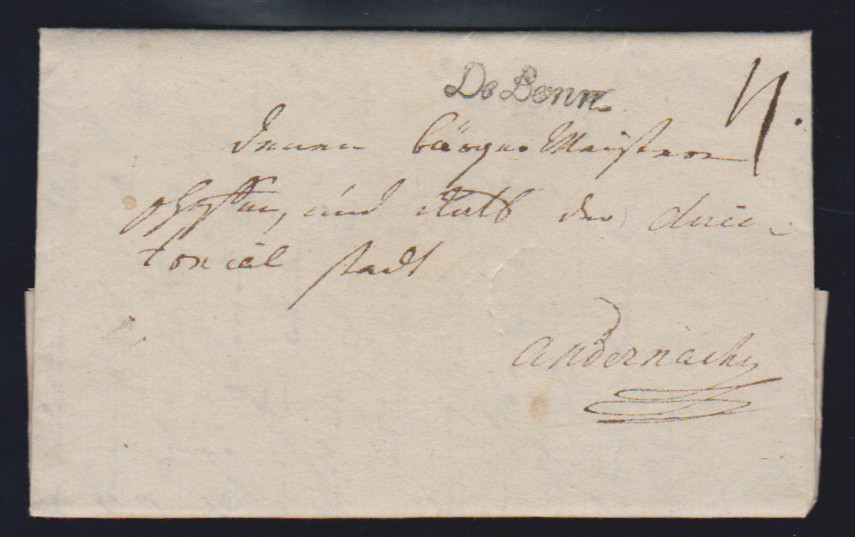 De Bonn
denen bürger Meisteren
schöffen, und Rath der direc-
torial stadt
andernach